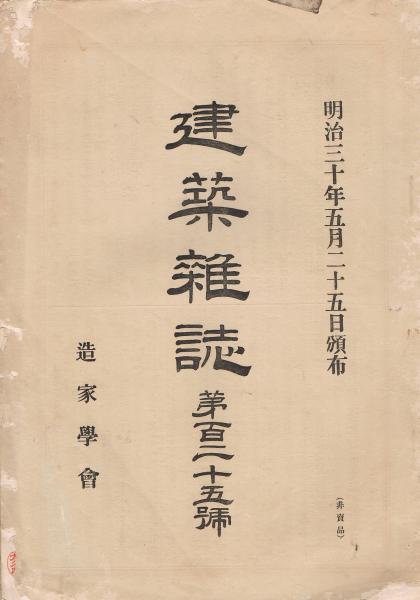 明治三十年五月二十五日頒布
(非賣品)
建築雜誌 第百二十五號
造家學會